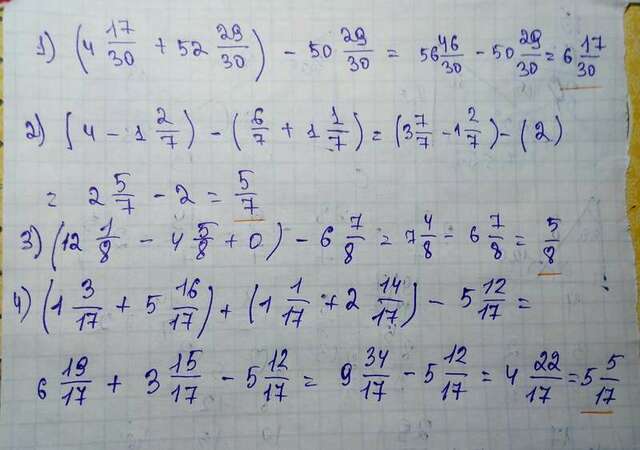 1) (4 17/30 + 52 29/30) - 50 29/30 = 56 46/30 - 50 29/30 = 6 17/30
2) (4 - 1 2/7) - (6/7 + 1 1/7) = (3 7/7 - 1 2/7) - (2)
= 2 5/7 - 2 = 5/7
3) (12 1/8 - 4 5/8 + 0) - 6 7/8 = 7 4/8 - 6 7/8 = 5/8
4) (1 3/17 + 5 16/17) + (1 1/17 + 2 14/17) - 5 12/17 =
6 19/17 + 3 15/17 - 5 12/17 = 9 34/17 - 5 12/17 = 4 22/17 = 5 5/17